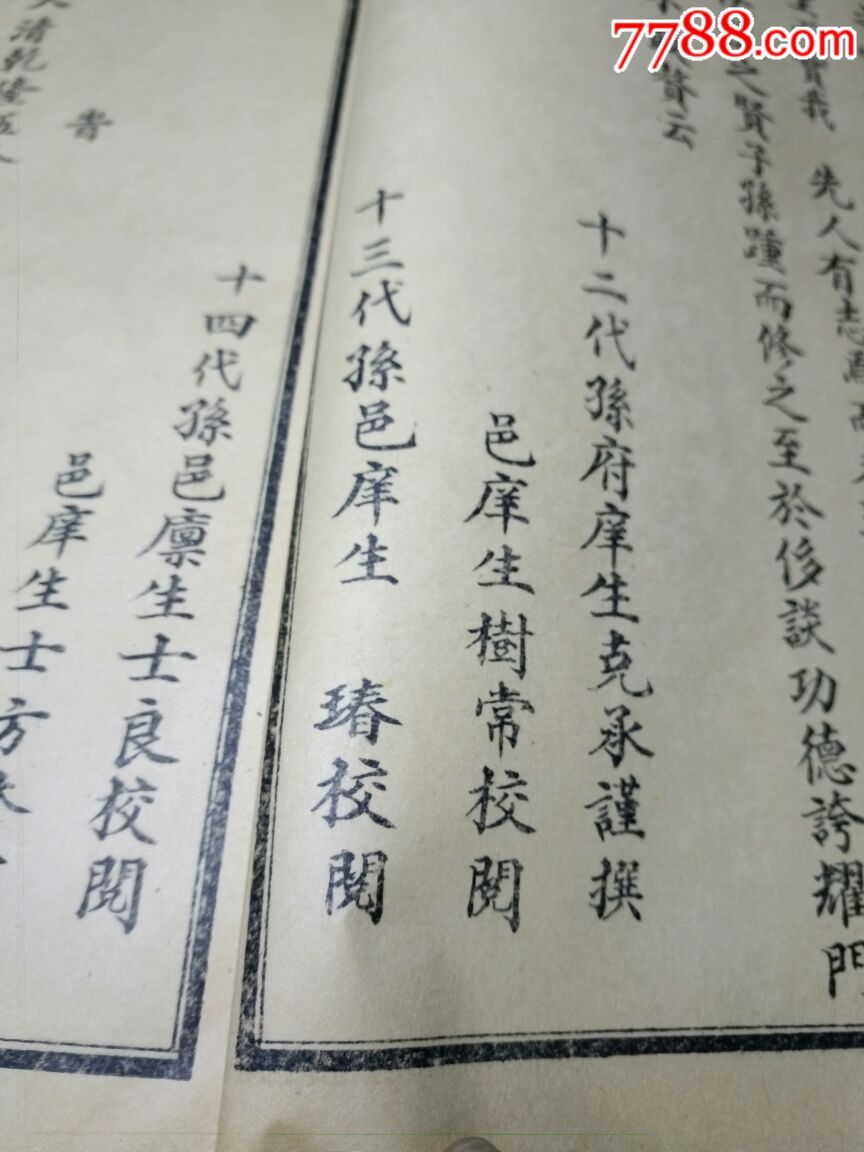 7788.com
先人有志焉而
之賢子孫踵而修之至於侈談功德誇耀門
贅云
十二代孫府庠生克承謹撰
邑庠生樹常校閱
十三代孫邑庠生 瑃校閱
十四代孫邑廩生士良校閱
邑庠生士方
大清乾隆伍